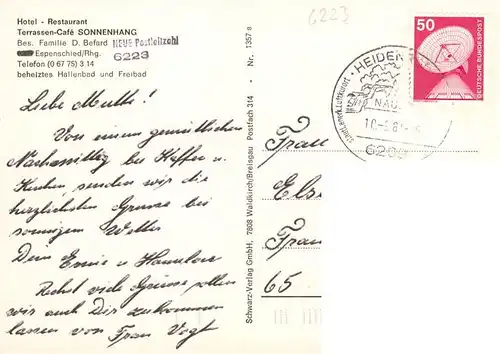 Hotel - Restaurant
Terrassen-Café SONNENHANG
Bes. Familie D. Befard
NEUE Postleitzahl
6223
Espenschied/Rhg.
Telefon (0 67 75) 3 14
beheiztes Hallenbad und Freibad
Liebe Mutti!
Von einem gemütlichen
Nachmittag bei Kaffee u.
Kuchen, senden wir die
herzlichsten Grüsse bei
sonnigem Wetter
Dein Ernie u. Hannelore
Recht viele Grüsse sollen
wir auch Dir zukommen
lassen von Frau Vogt
Schwarz-Verlag GmbH. 7808 Waldkirch/Breisgau Postfach 314 • Nr. 1357 a
6223
50
DEUTSCHE BUNDESPOST
staatl.anerk.Luftkurort · HEIDEN
620
Frau
Els
Frau
65